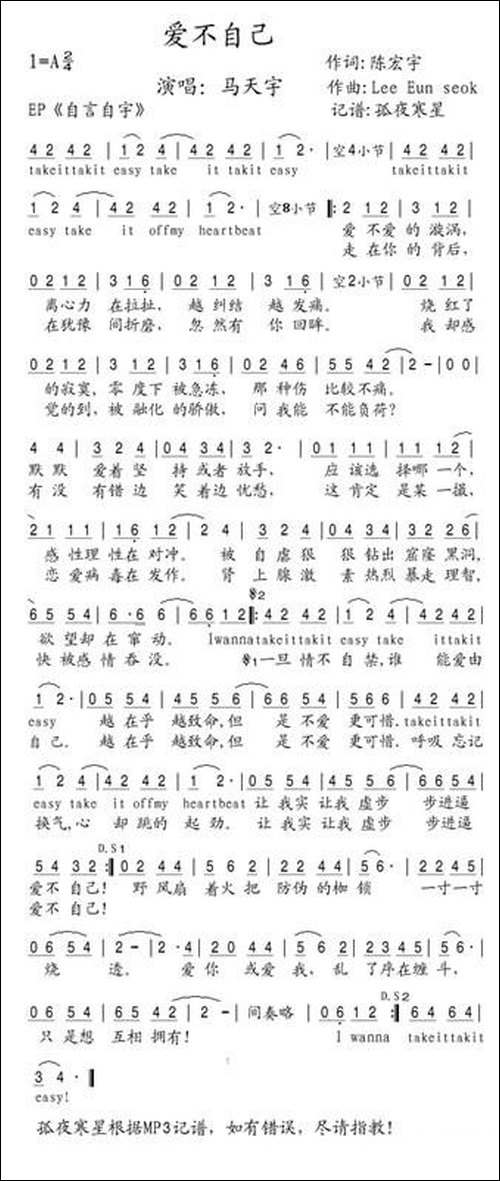 爱不自己
1=A 2/4
作词:陈宏宇
演唱:马天宇
作曲:Lee Eun seok
EP《自言自宇》
记谱:孤夜寒星
42 42 | 12 4 | 42 42 | 12· | 空4小节 | 42 42 |
takeittakit easy take it takit easy takeittakit
12 4 | 42 42 | 12· | 空8小节 ‖: 2 12 | 3 12 |
easy take it offmy heartbeat 爱 不爱 的 漩涡,
走 在你 的 背后,
0212 | 316 | 02 12 | 3 16 | 空2小节 | 02 12 |
离心力 在拉扯, 越 纠结 越 发痛。 烧 红了
在犹豫 间折磨, 忽 然有 你 回眸。 我 却感
0212 | 3 12 | 316 | 02 46 | 55 42 | 2- | 00 |
的寂寞,零 度下 被急冻, 那 种伤 比较不痛。
觉的到,被 融化 的骄傲, 问 我能 不能负荷?
4 4 | 3 2 4 | 04 34 | 3 2· | 01 11 | 11 12 |
默 默 爱着 坚 持或者 放手, 应 该选 择哪 一个,
有 没 有错 边 笑着边 忧愁, 这 肯定 是某 一摄,
21 11 | 16 12 | 2 4 | 3 2 4 | 04 34 | 32 26 |
感 性理 性在 对冲。 被 自虐 狠 狠钻出 窟窿 黑洞,
恋 爱病 毒在 发作。 肾 上腺 激 素热烈 暴走 理智,
𝄋2
65 54 | 6·6 6 | 6612 :‖ 42 42 | 12 4 | 4242 |
欲 望却 在 窜 动。 Iwannatakeittakit easy take ittakit
快 被感 情 吞 没。 𝄋1一旦 情不 自 禁,谁 能爱由
12· | 05 54 | 45 56 | 66 54 | 566 | 42 42 |
easy 越 在乎 越致命,但 是 不爱 更可惜.takeittakit
自己. 越 在乎 越致命,但 是 不爱 更可惜.呼吸 忘记
12 4 | 42 42 | 12· | 05 54 | 45 56 | 6654 |
easy take it offmy heartbeat 让 我实 让我 虚步 步进逼
换气,心 却 跳的 起 劲. 让 我实 让我 虚步 步进逼
D.S1
54 32 :‖ 02 44 | 5 6 2 | 44 42 | 56· | 2245 |
爱不 自己! 野 风扇 着火 把 防伪 的枷 锁 一寸一寸
爱不 自己!
06 54 | 2- | 2·4 | 20 04 | 44 23 | 2345 | 56· |
烧 透。 爱 你 或 爱 我, 乱 了序在 缠斗,
D.S2
06 54 | 65 42 | 2 - | 间奏略 | 0612 :‖ 64 64 |
只 是想 互相 拥有! I wanna takeittakit
34· ‖
easy!
孤夜寒星根据MP3记谱,如有错误,尽请指教!